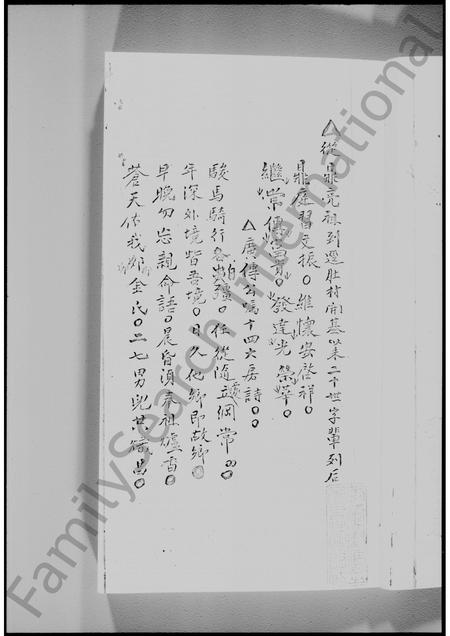 △從鼎亮祖到遷肚村開基以來二十世字輩列后
鼎庭習文振。維懷安啓祥。
繼常傳富貴。發達光榮華。
△廣傳公嘱十四六房詩。。
駿馬騎行各出疆。任從隨立綱常。
年深外境皆吾境。日久他鄉即故鄉。
早晚勿忘親命語。晨昏須奉祖爐香。
蒼天佑我卯金氏。二七男兒共熾昌。
FamilySearch International